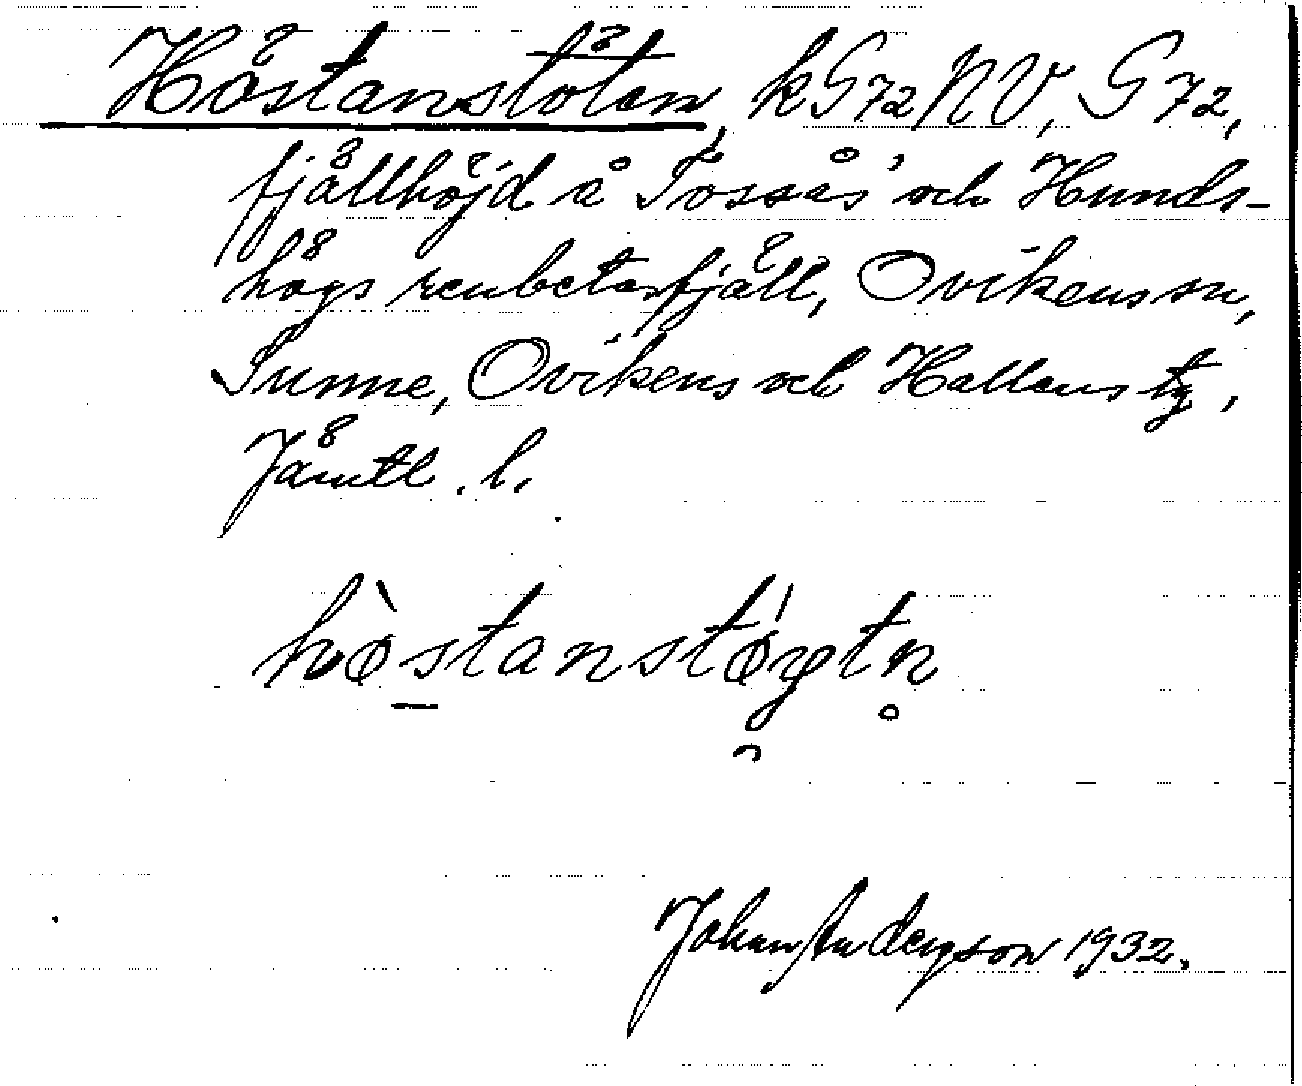 Höstanstöten, kG72NV, G72,
fjällhöjd å Tossås' och Hunds-
högs renbetesfjäll, Ovikens sn,
Sunne, Ovikens och Hallens tg,
Jämtl. l.
hò̱stanstǿytn̥
Johan Anderson 1932.